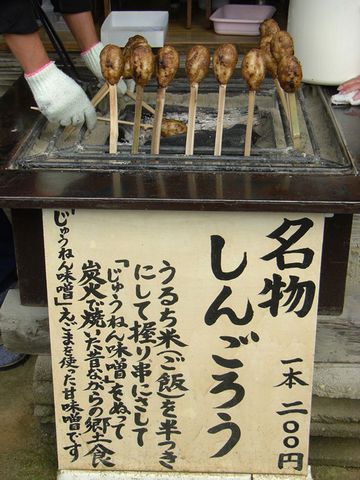 名物
しんごろう
一本 二〇〇円
うるち米(ご飯)を半つき
にして握り串にさして
「じゅうねん味噌」をぬって
炭火で焼いた昔ながらの郷土食
「じゅうねん味噌」えごまを使った甘味噌です